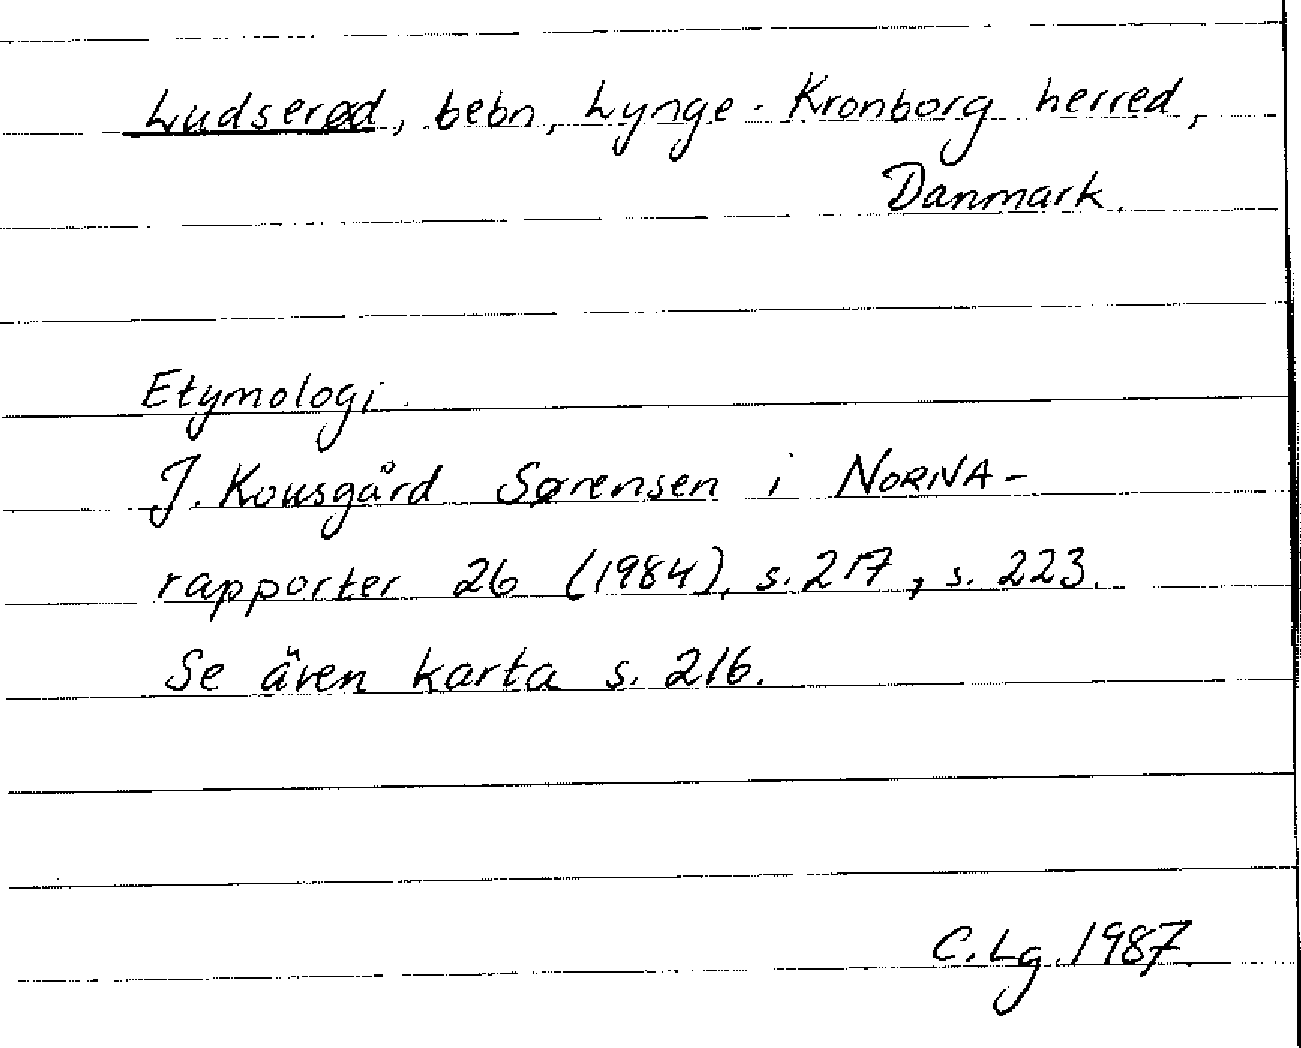 Ludserød, bebn, Lynge-Kronborg herred,
Danmark.
Etymologi
J. Kousgård Sørensen i NORNA-
rapporter 26 (1984), s. 217, s. 223.
Se även karta s. 216.
C. Lg. 1987